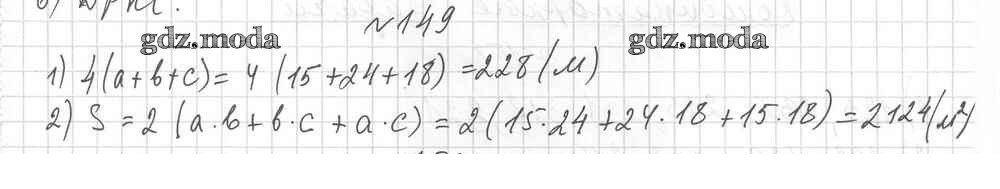 б) Дм.
№149
gdz.moda gdz.moda
1) 4(a+b+c)= 4 (15+24+18) =228 (м)
2) S = 2 (a·b+b·c +a·c) = 2(15·24+24·18+15·18)=2124(м²)